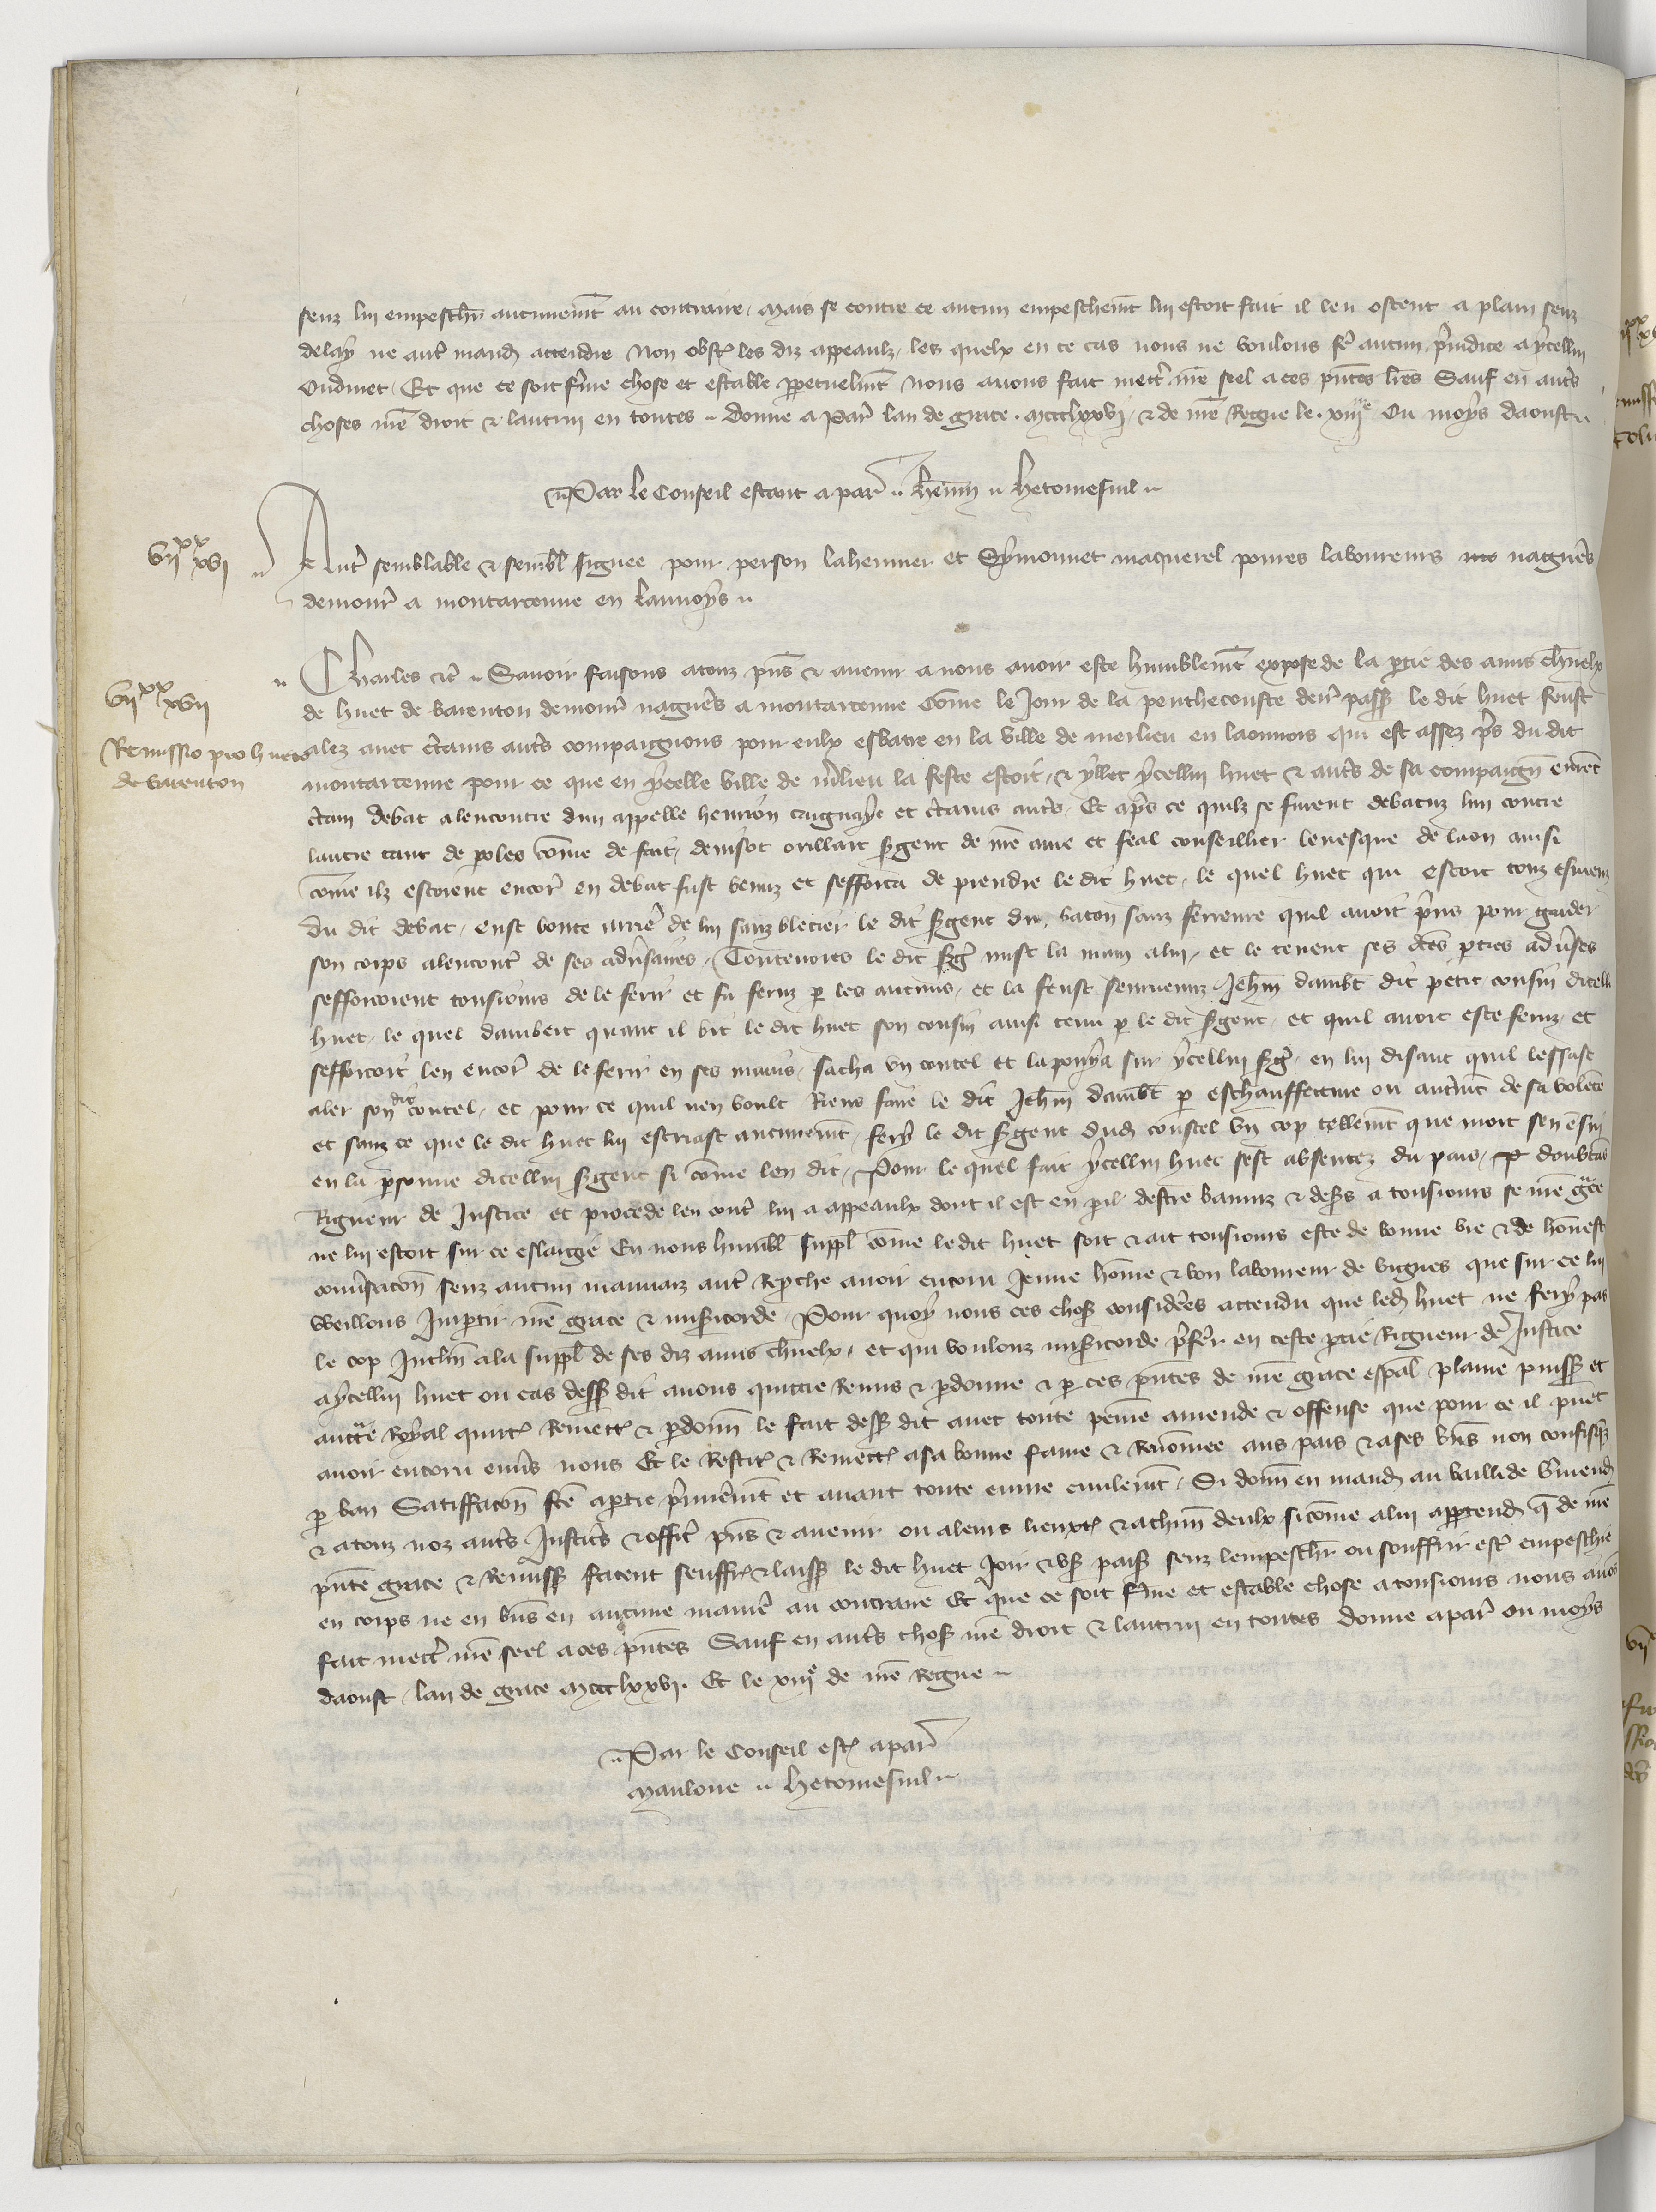 senz lui empeschr aucunemt au contraire, Mais se contre ce aucun empeschemt lui estoit fait il len ostent a plain senz
delay ne autr mand attendre Non obst les diz appeaulz, les quelx en ce cas nous ne voulons fe aucun preiudice a ycellui
Oudinet, Et que ce soit ferme chose et estable perpetuelmt Nous avons fait mectr nre seel a ces pntes lres Sauf en autrs
choses nre droit & lautrui en toutes .. Donne a Par lan de grace . mccclxxvj . & de nre Regne le . xiije Ou moys daoust ..
Par le Conseil estant a par .. henry .. hetomesnil ..
viixx xvi
Autr semblable & sembl signee pour person lahenner et Symonnet maquerel poures laboureurs nagueres
demour a montarcenne en Lannoys ..
viixx xvii
Remissio pro hueto
de varenton
Charles etc .. Savoir faisons a touz pns & avenir a nous avoir este humblemt expose de la ptie des amis charnelx
de huet de varenton demour nagueres a montarcenne Come le Jour de la penthecouste derr passe le dit huet feust
alez avec ctains autrs compaignons pour eulx esbatre en la ville de merlieu en laonnois qui est assez pres du dit
montarcenne pour ce que en ycelle ville de merlieu la feste estoit, & yllec ycellui huet & autrs de sa compaign eurent
ctain debat alencontre dun appelle henrion et ctains autrs, Et apres ce quilz se furent debatuz lun contre
lautre tant de poles come de fait, denisot orillart sergent de nre ame et feal conseillier levesque de laon ainsi
come ilz estoient encor en debat fust venuz et sefforca de prendre le dit huet, le quel huet qui estoit touz esmeuz
du dit debat, eust boute arrier de lui sanz blecier le dit sergent du baton sanz ferreure quil avoit prins pour garder
son corps alencontr de ses adversaires, Toutevoies le dit serg mist la main a lui, et le tenent ses des pties adverses
sefforcoient tousiours de le ferir et fu feruz p les aucuns, et la feust seurvenuz Jehan daubt dit petit cousin dicell
huet, le quel daubert quant il vit le dit huet son cousin ainsi tenu p le dit sergent, et quil avoit este feruz, et
sefforcoit len encor de le ferir en ses mains, sacha un coutel et lapoya sur ycellui serg, en lui disant quil lessast
aler son dit coutel, et pour ce quil nen voult Riens faire le dit Jehan daubt p eschauffeture ou autremt de sa volente
et sanz ce que le dit huet lui escriast aucunemt, fery le dit sergent dud coustel un cop tellemt que mort sen ensui
en la psonne dicellui sergent si come len dit, Pour le quel fait ycellui huet sest absentez du pais, P doubtans
Rigueur de Justice et procede len contr lui a appeaulx dont il est en pil destre banniz & desers a tousiours se nre grace
ne lui estoit sur ce eslargie En nous humbl suppl come ledit huet soit & ait tousiours este de bonne vie & de honest
conversacon senz aucun mauvaiz autr Reproche avoir encoru Jeune home & bon laboureur de vignes que sur ce lui
weillons Impartir nre grace & misericorde, Pour quoy nous ces choses considerees attendu que led huet ne fery pas
le cop Inclin a la suppl de ses diz amis charnelx, et qui voulonz misericorde preferer en ceste ptie Rigueur de Justice
a ycellui huet ou cas dessus dit avons quictie Remis & pdonne & p ces pntes de nre grace espal plaine puiss et
auctte Royal quictt Remectt & pdonn le fait dessus dit avec toute peine amende & offense que pour ce il puet
avoir encoru envers nous Et le Restit & Remectt a sa bonne fame & Renommee aus pais & a ses bns non confisqz
p ban Satiffacon fce a ptie premieremt et avant toute euvre civilemt, Si donn en mand au bailli de vermend
& a touz noz autrs Justicrs & offic pns & avenir ou a leurs lieux t & a chun deulx si come a lui apptend q de nre
pnte grace & Remiss facent seuffrt & laiss le dit huet Joir & user paisiblement senz lempeschr ou souffrir estr empeschie
en corps ne en bns en aucune manier au contraire Et que ce soit ferme et estable chose a tousiours nous avos
fait mectr nre seel a ces pntes Sauf en autrs choses nre droit & lautrui en toutes donne a par ou moys
daoust, lan de grace mccclxxvi . Et le xiije de nre Regne ..
Par le Conseil est a par
Mauloue .. hetomesnil ..